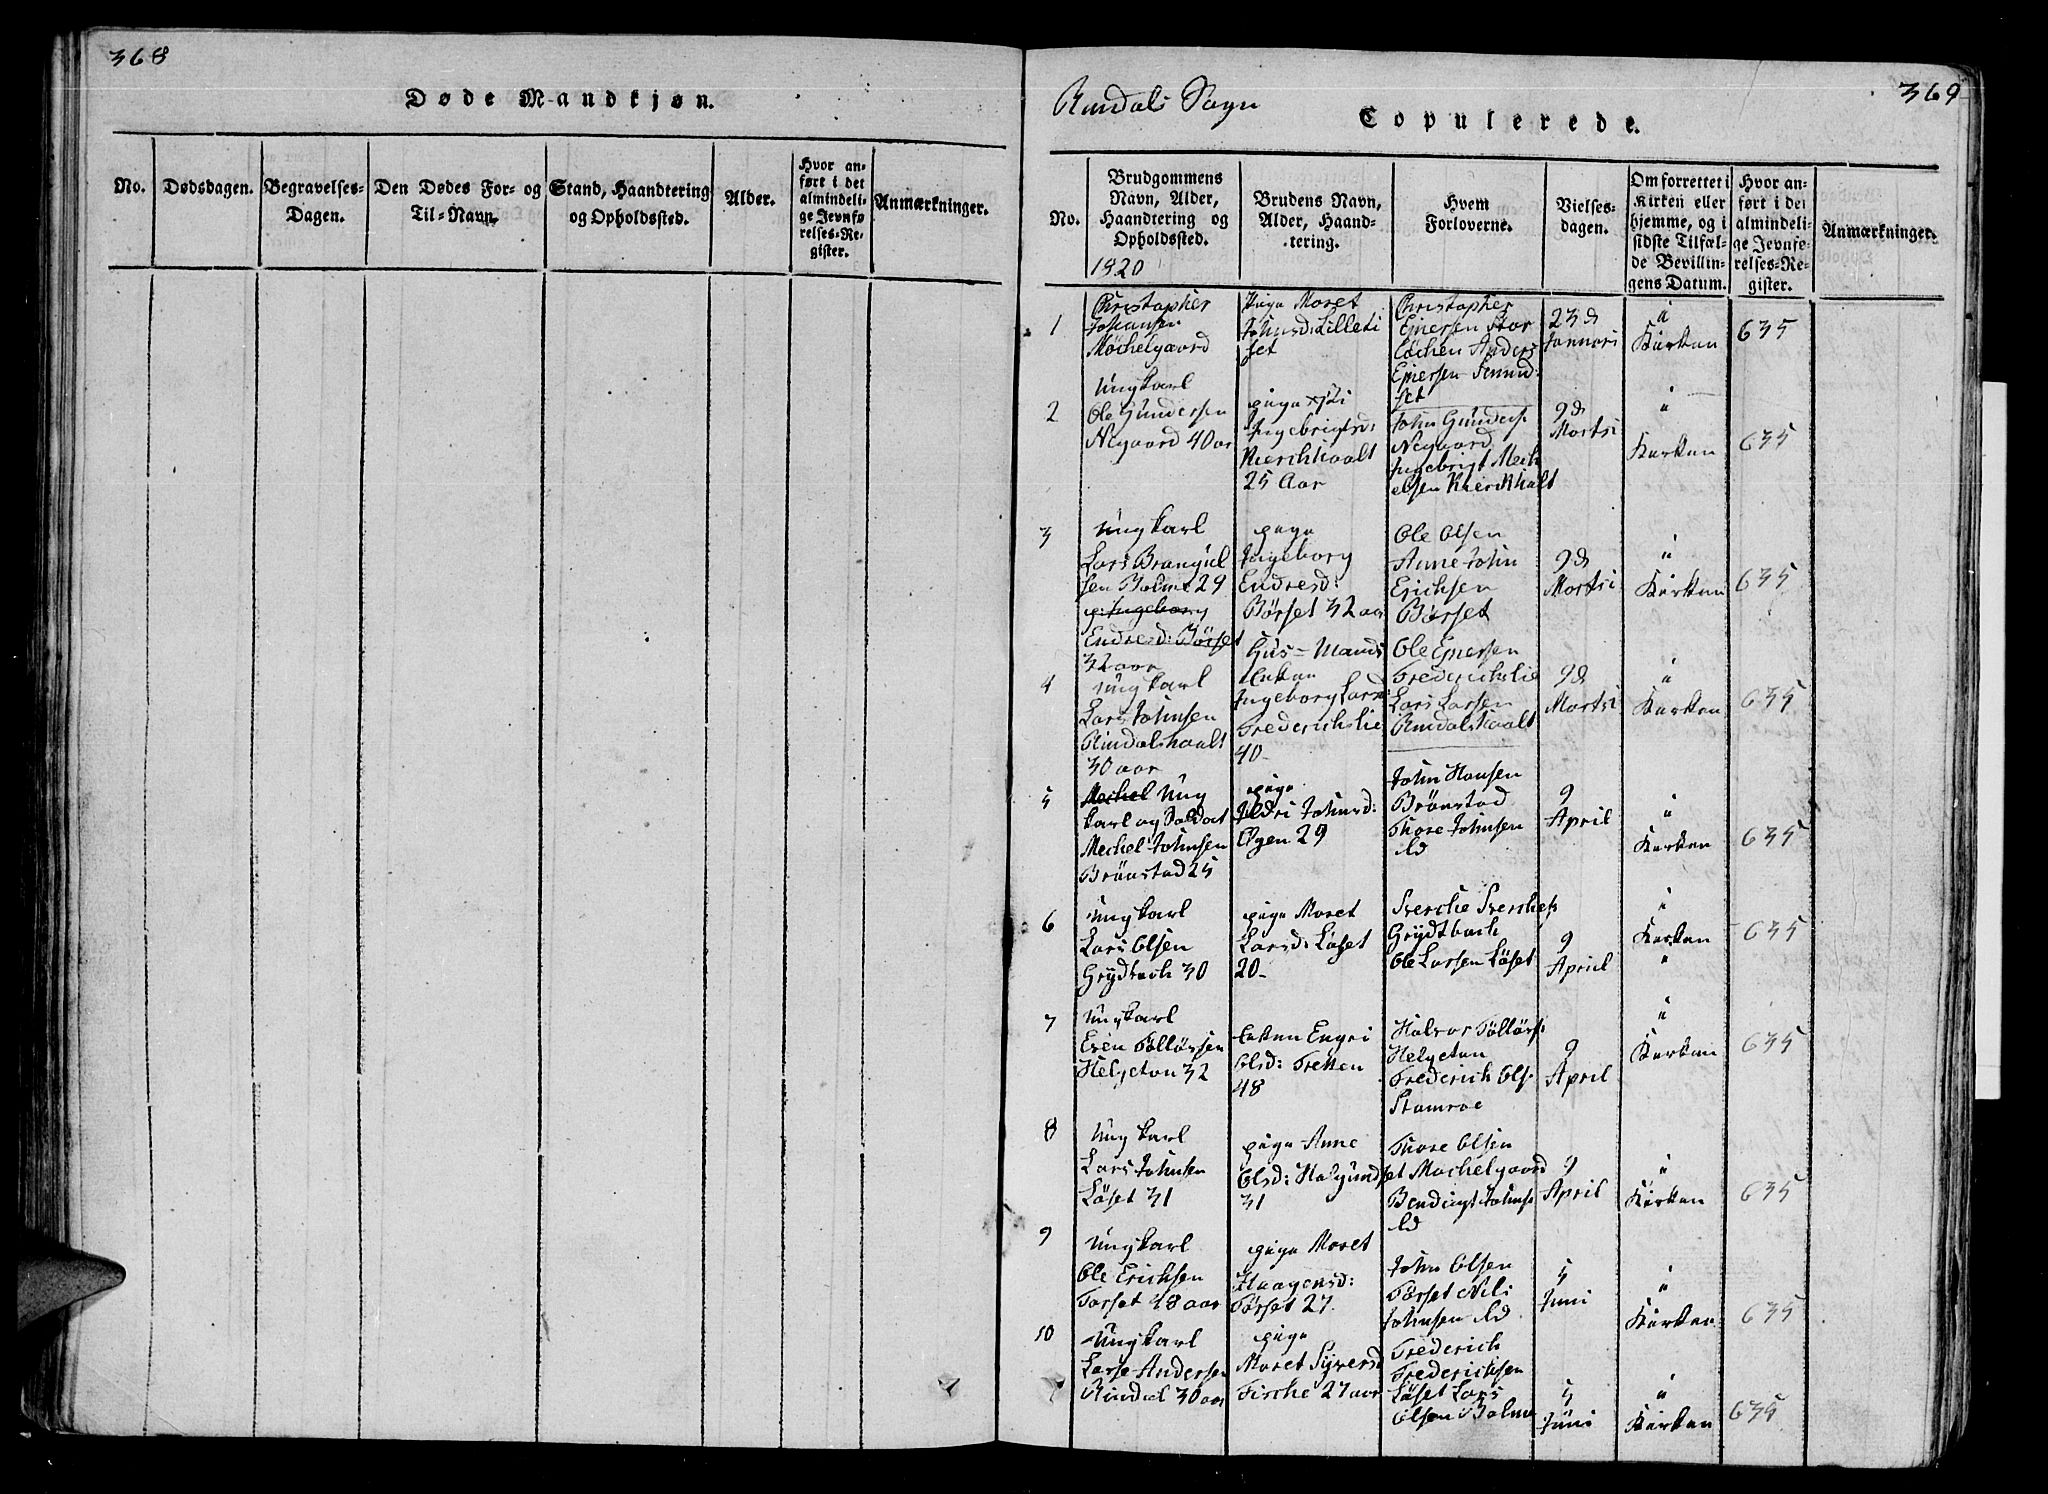 368
Døde Mandkjøn.
No.
Dødsdagen.
Begravelses-
Dagen.
Den Dødes For- og
Til-Navn.
Stand, Haandtering
og Opholdssted.
Alder.
Hvor an-
ført i det
almindeli-
ge Jevnfø
relses-Re-
gister.
Anmærkninger.
Rindals Sogn
369
Copulerede.
No.
Brudgommens
Navn, Alder,
Haandtering og
Opholdssted.
1820
Brudens Navn,
Alder, Haand-
tering.
Hvem
Forloverne.
Vielses-
dagen.
Om forrettet i
Kirken eller
hjemme, og i
sidste Tilfæl-
de Bevillin-
gens Datum.
Hvor an-
ført i det
almindeli-
ge Jevnfø-
relses-Re-
gister.
Anmærkninger.
1
Christopher
Johansen
Möchelgaard
Pige Maret
Johnsd: Lilleti
set
Christopher
Ejnersen Stor
Löchen Anders
Ejnersen
set
23d
Januari
i
Kirken
635
2
Ungkarl
Ole Gundersen
Negaard 40 aar
pige
Ingebrigtsd:
Kierchhaalt
25 Aar
John Gunders
Negaard
Ingebrigt Mech
elsen Kierchhalt
9d
Martsi
i
Kirken
635
3
Ungkarl
Lars Brangiel
sen Bolme 29
p: Ingeborg
Endresd: Börset
32 aar
pige
Ingeborg
Endresd:
Börset 32 aar
Ole Olsen
Aune John
Erichsen
Börset
9d
Martsi
i
Kirken
635
4
Ungkarl
Lars Johnsen
Rindalshaalt
30 aar
Huus-Mands
Enken
Ingeborg Larsd
Frederichslie
40-
Ole Ejnersen
Frederichslie
Lars Larsen
Rindalshaalt
9d
Martsi
i
Kirken
635
5
Mechel Ung
karl og Soldat
Mechel Johnsen
Brönstad 25
pige
Ildri Johnsd:
Øyen 29
John Hansen
Brönstad
Thore Johnsen
Ild
9
April
i
Kirken
635
6
Ungkarl
Lars Olsen
Grydtbach 30
pige Maret
Larsd: Löset
20-
Sverche Sverches
Grydtbach
Ole Larsen Löset
9
April
i
Kirken
635
7
Ungkarl
Even Tollörsen
Helgeton 32
Enken Engri
Olsd: Tretten
48
Halvor Töllörs:
Helgeton
Frederich Ols:
Stomroe
9
April
i
Kirken
635
8
Ungkarl
Lars Johnsen
Löset 31
pige Anne
Olsd: Halgunds
31
Thore Olsen
et Mochelgaard
Bendigt Johns
Ild
9
April
i
Kirken
635
9
Ungkarl
Ole Erichsen
Torset 48 aar
pige Maret
Haagensd:
Torset 27.
John Olsen
Torset Nils
Johnsen Ild
5
Juni
i
Kirken
635
10
Ungkarl
Larse Andersen
Rindal 30 aar
pige
Maret Syversd
Fische 27 aar
Frederich
Frederichsen
Löset Lars
Olsen Bolme
5
Juni
i
Kirken
635